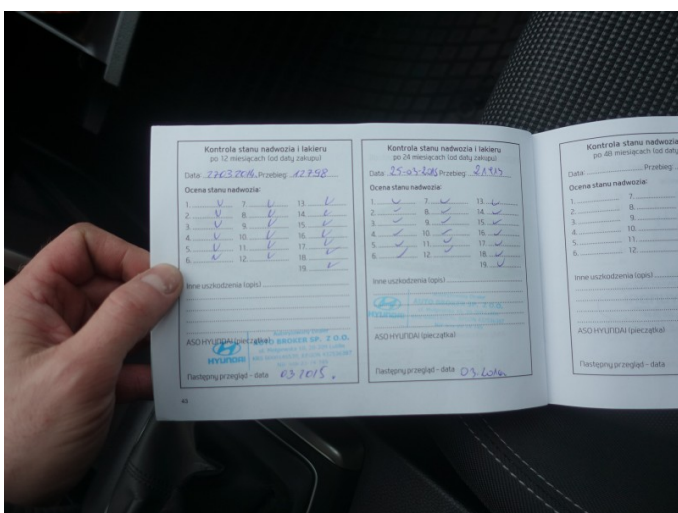 Kontrola stanu nadwozia i lakieru
po 12 miesiącach (od daty zakupu)
Data: Przebieg: 12798
Ocena stanu nadwozia:
1. V 7. V 13. V
2. V 8. V 14. V
3. V 9. V 15. V
4. V 10. V 16. V
5. V 11. V 17. V
6. V 12. V 18. V
19. V
Inne uszkodzenia (opis)
ASO HYUNDAI (pieczątka)
HYUNDAI
AUTO BROKER SP. Z O.O.
Następny przegląd - data 03.2015.
43
Kontrola stanu nadwozia i lakieru
po 24 miesiącach (od daty zakupu)
Data: 25-03-2015 Przebieg:
Ocena stanu nadwozia:
1. V 7. V 13. V
2. V 8. V 14. V
3. V 9. V 15. V
4. V 10. V 16. V
5. V 11. V 17. V
6. V 12. V 18. V
19. V
Inne uszkodzenia (opis)
ASO HYUNDAI (pieczątka)
Następny przegląd - data
Kontrola stanu nadwozia
po 48 miesiącach (od daty
Data: Przebieg:
Ocena stanu nadwozia:
1. 7.
2. 8.
3. 9.
4. 10.
5. 11.
6. 12.
Inne uszkodzenia (opis)
ASO HYUNDAI (pieczątka)
Następny przegląd - data